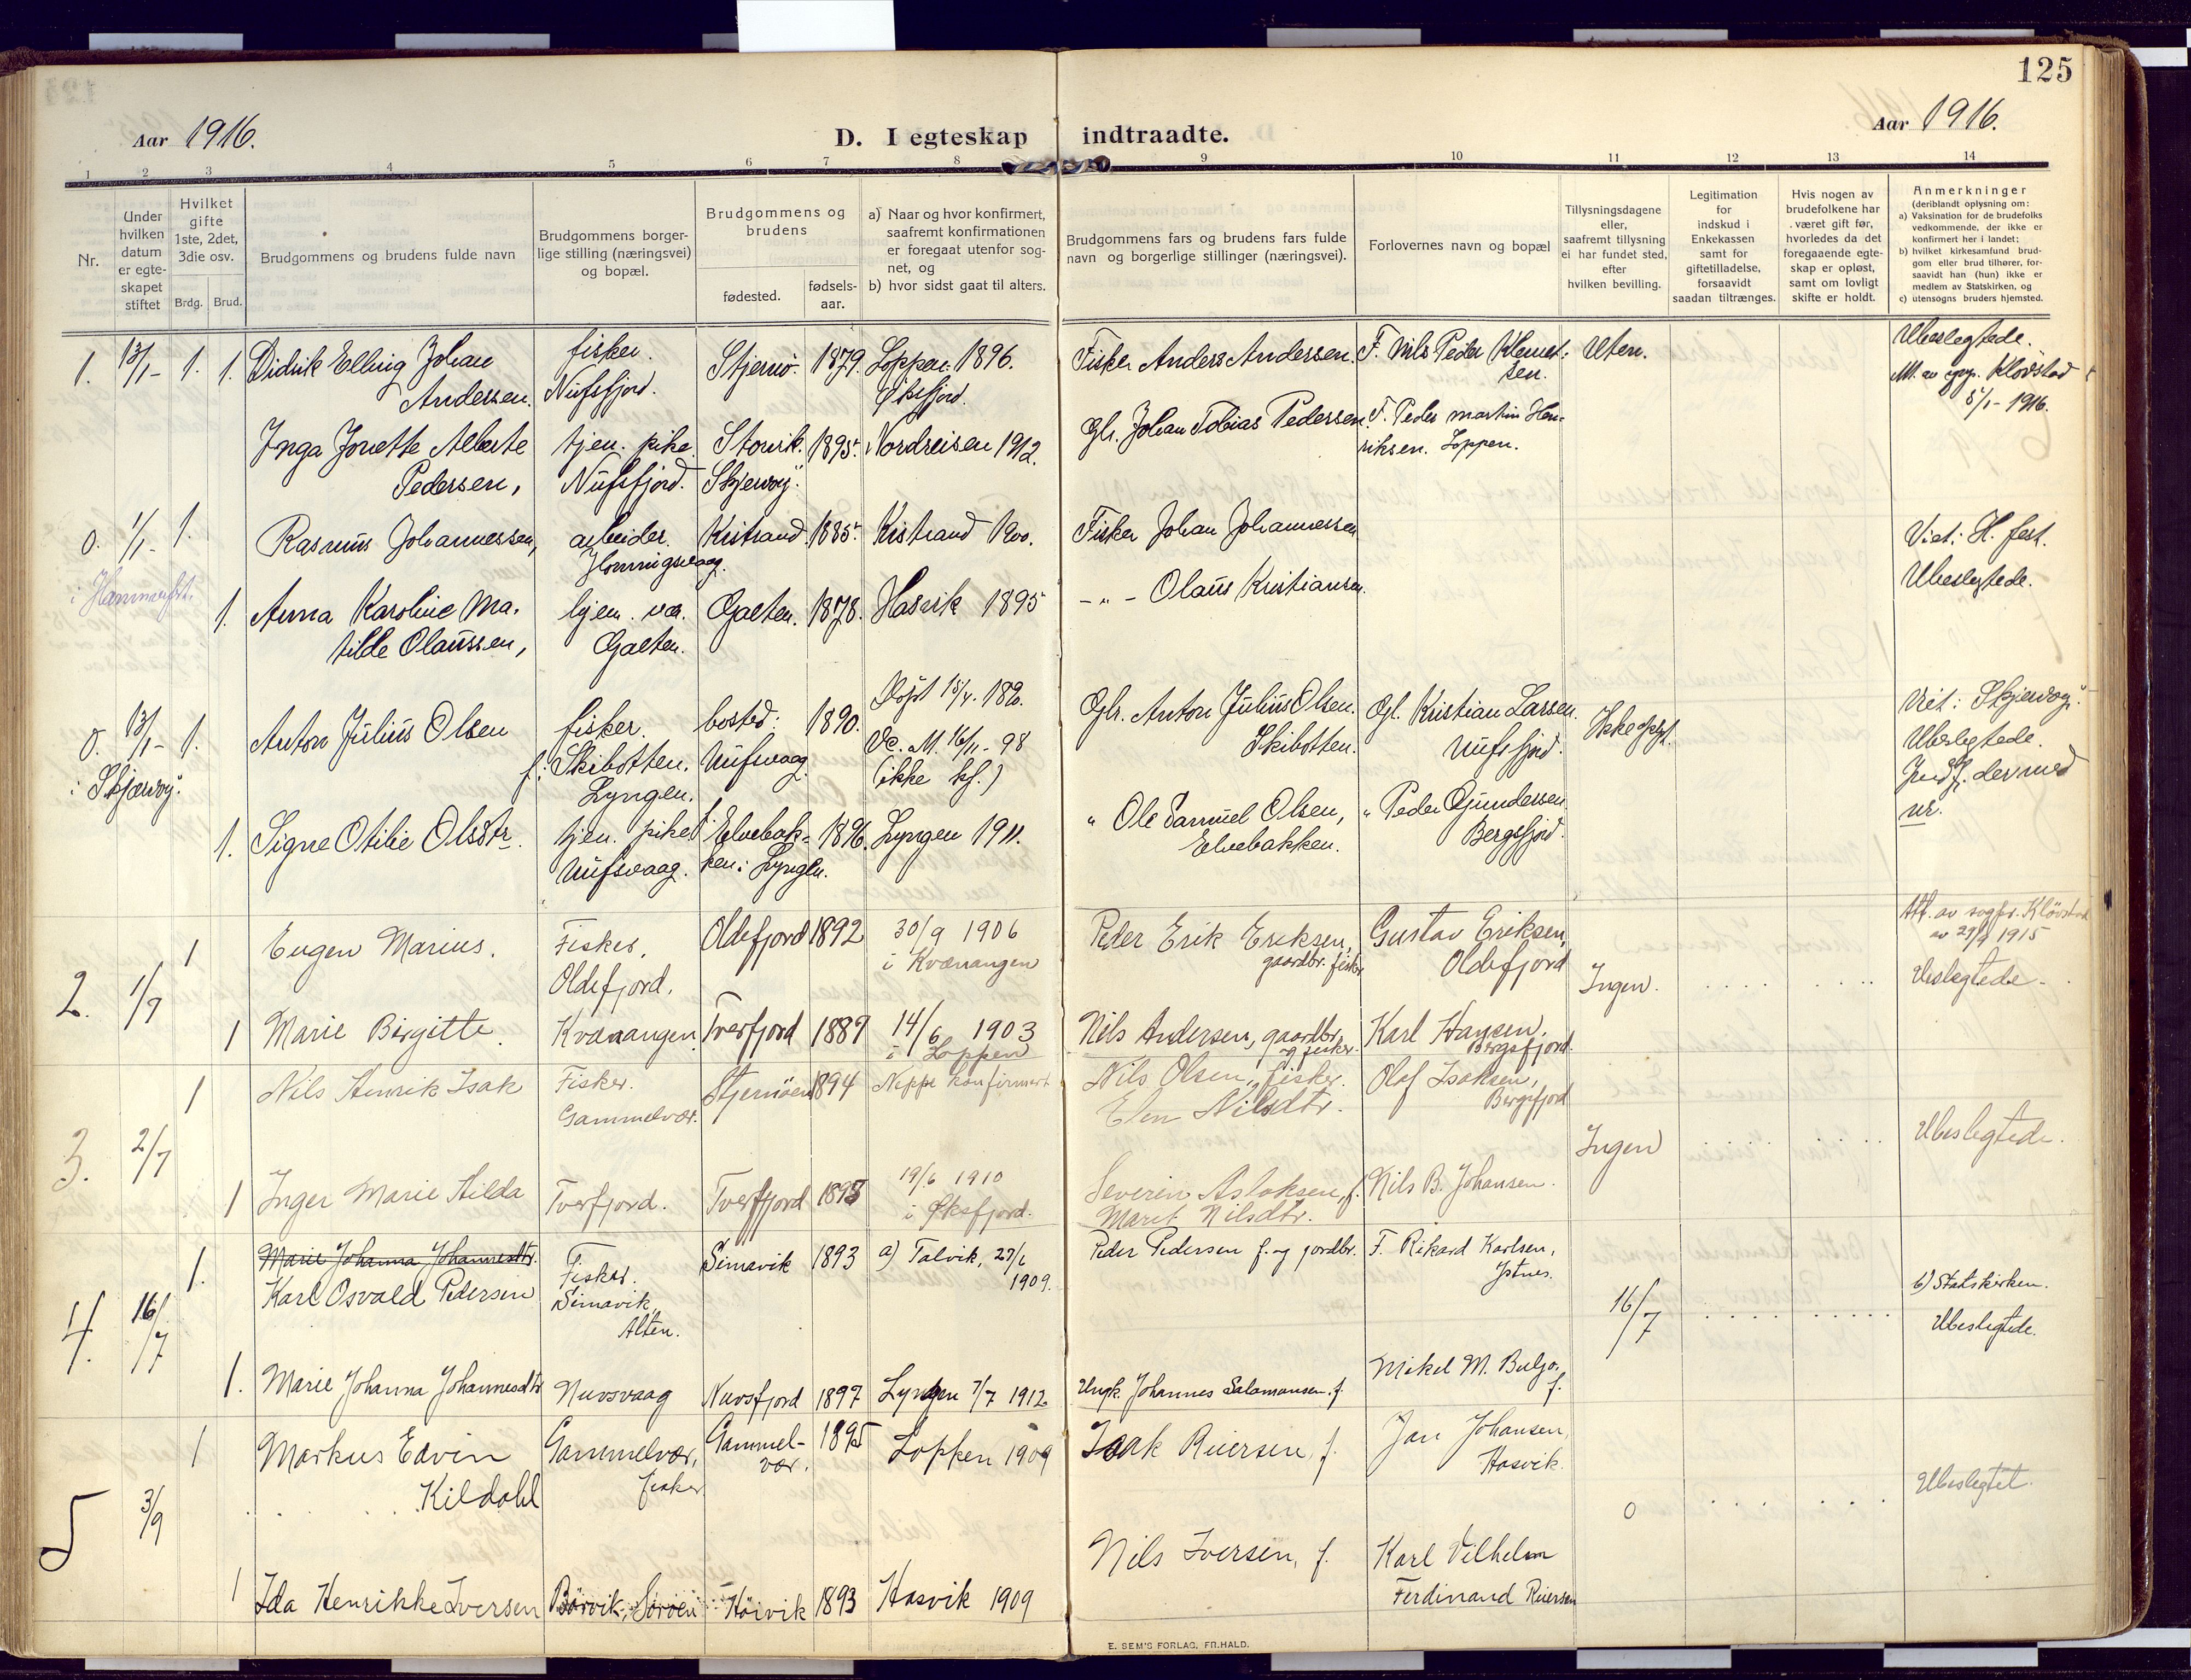 125
Aar 1916.
D. I egteskap indtraadte.
Aar 1916.
1 2 3 4 5 6 7 8 9 10 11 12 13 14
Nr.
Under hvilken datum er egte-skapet stiftet
Hvilket gifte 1ste, 2det, 3die osv.
Brdg. Brud.
Brudgommens og brudens fulde navn
Brudgommens borger-lige stilling (næringsvei) og bopæl.
Brudgommens og brudens
fødested.
fødsels-aar.
a) Naar og hvor konfirmert, saafremt konfirmationen er foregaat utenfor sog-net, og
b) hvor sidst gaat til alters.
Brudgommens fars og brudens fars fulde navn og borgerlige stillinger (næringsvei).
Forlovernes navn og bopæl
Tillysningsdagene eller, saafremt tillysning ei har fundet sted, efter hvilken bevilling.
Legitimation for indskud i Enkekassen samt for giftetilladelse, forsaavidt saadan tiltrænges.
Hvis nogen av brudefolkene har været gift før, hvorledes da det foregaaende egte-skap er opløst, samt om lovligt skifte er holdt.
Anmerkninger
(deriblandt oplysning om:
a) Vaksination for de brudefolks vedkommende, der ikke er konfirmert her i landet;
b) hvilket kirkesamfund brud-gom eller brud tilhører, for-saavidt han (hun) ikke er medlem av Statskirken, og
c) utensogns bruders hjemsted.
1. 13/1- 1. 1. Didrik Elling Johan Andersen.
fisker. Nufsfjord.
Stjernö. 1879. Loppen. 1896. Øksfjord.
Fisker Anders Andersen. F. Nils Peder Klemet-sen.
Uten.
Ubeslegtede.
Klövstad 5/1- 1916.
Inga Jonette Alberte Pedersen,
tjen. pike Nufsfjord.
Storvik. Skjervöy. 1895. Nordreisen 1912.
Gbr. Johan Tobias Pedersen. F. Peder Martin Hen-riksen. Loppen.
0. 1/1- 1. Rasmus Johannessen,
i Hammerfst.
arbeider. Honningsvaag.
Kistrand. 1885. Kistrand 1900.
Fisker Johan Johannessen
Viet: H. fest.
Ubeslegtede.
1. Anna Karoline Ma-tilde Olaussen,
hjem. væ. Gaeten.
Gaeten. 1878. Hasvik 1895
- " - Olaus Kristiansen.
0. 13/1- 1. Anton Julius Olsen
i Skjervöy.
fisker. f: Skibotten. Lyngen.
bosted: Nufsvaag. 1890.
16/11- 98 (ikke kf.)
Gbr. Anton Julius Olsen. Skibotten.
Kristian Larsen. Nufsfjord.
Viet: Skjervöy.
Ubeslegtede.
Indf. der med nr.
1. Signe Otilie Olsdtr.
tjen. pike Nufsvaag.
Elvebak-ken i Lyngen. 1896. Lyngen 1911.
" Ole Samuel Olsen, Elvebakken.
" Peder Gundersen Bergsfjord.
2. 1/7 1 Eugen Marius.
Fisker, Oldefjord,
Oldefjord 1892 30/9 1906 i Kvænangen
Peder Erik Eriksen, gaardbr. fisker
Gustav Eriksen, Oldefjord
Ingen.
Att. av sogpr. Klövstad av 29/9 1915
Ubeslegtede.
1 Marie Birgitte.
Kvænangen. Tverfjord 1889 14/6 1903 i Loppen
Nils Andersen, gaardbr. og fisker.
Karl Hansen, Bergsfjord.
3. 2/7 1 Nils Henrik Isak
Fisker. Gammelvær.
Stjernöen 1894 Neppe konfirmert
Nils Olsen, fisker. Elen Nilsdtr.
Olaf Isaksen, Bergsfjord
Ingen
Ubeslegtede.
1 Inger Marie Hilda
Tverfjord. Tverfjord 1893 19/6 1910 i Øksfjord.
Severin Aslaksen, f. Marit Nilsdtr.
Nils B. Johansen.
4. 16/7 1. Marie Johanna Johannesdtr.
Karl Osvald Pedersen
Fisker. Simavik, Alten.
Simavik 1893 a) Talvik, 27/6 1909.
Peder Pedersen f. og jordbr.
F. Rikard Karlsen, Istnes.
16/7
b) Statskirken.
Ubeslegtede.
1. Marie Johanna Johannesdtr
Nuvsvaag Nuvsfjord 1897 Lyngen 7/7 1912
Ungk. Johannes Salamonsen. f.
Mikel M. Buljo, f.
5 3/9 1 Markus Edvin Kildahl
Gammelvær, fisker
Gammel-vær. 1895 Loppen 1909
Isak Reiersen, f.
Jan Johansen, Hasvik.
0
Ubeslegtet.
1 Ida Henrikke Iversen
Börvik, Söröen Hörvik 1893 Hasvik 1909
Nils Iversen, f.
Karl Vilhelm Ferdinand Reiersen
E. SEM'S FORLAG, FR.HALD.